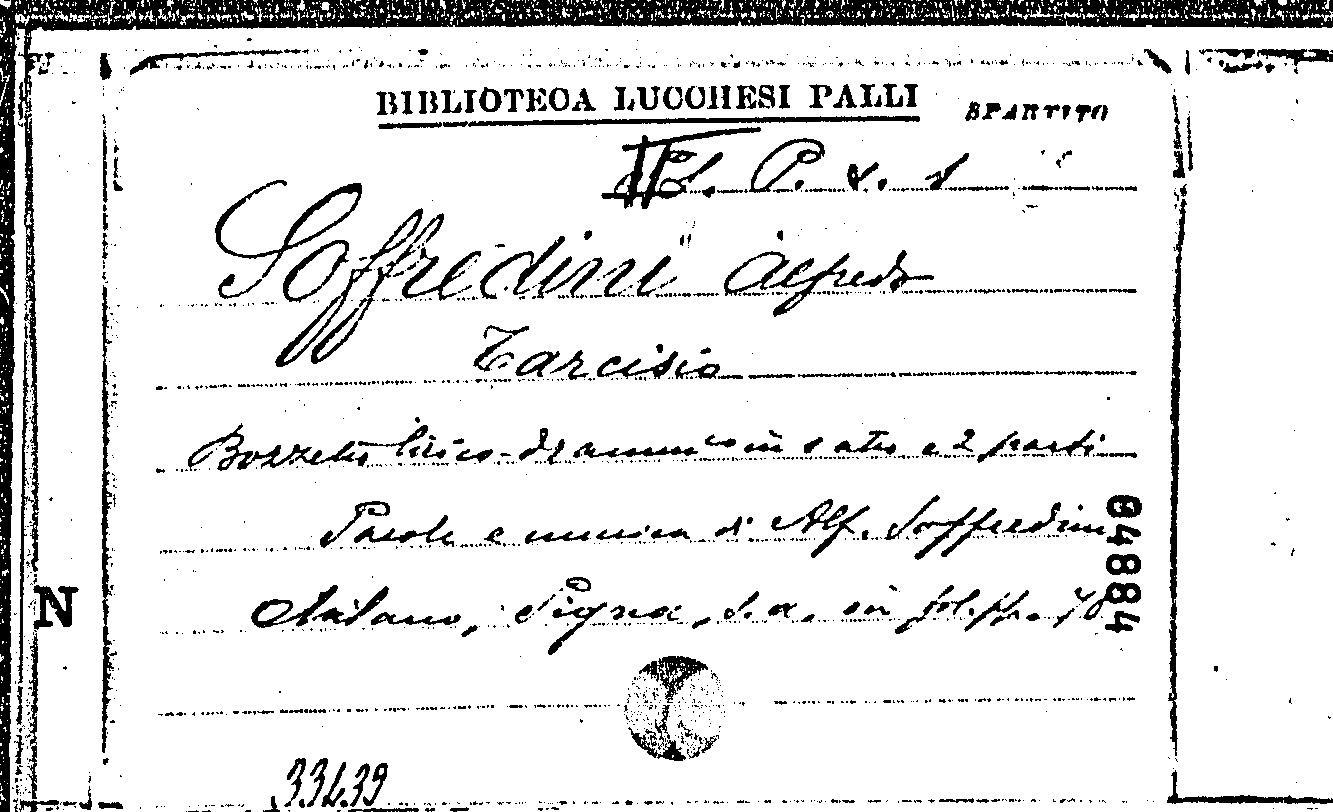 BIBLIOTECA LUCCHESI PALLI SPARTITO
S. P. x. 1
Soffredini Alfredo
Tarcisio
Bozzetto lirico-drammco in 1 atto e 2 parti
Parole e musica di Alf. Soffredini
Milano, Pigna, s. a. in fol. pp. 70
04884
N
33439